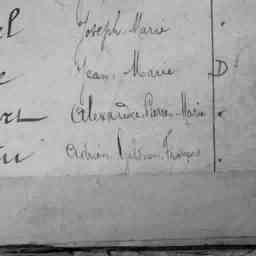 el Joseph Marie
e Jean Marie D
Alexandre Pierre Marie
Adrien François